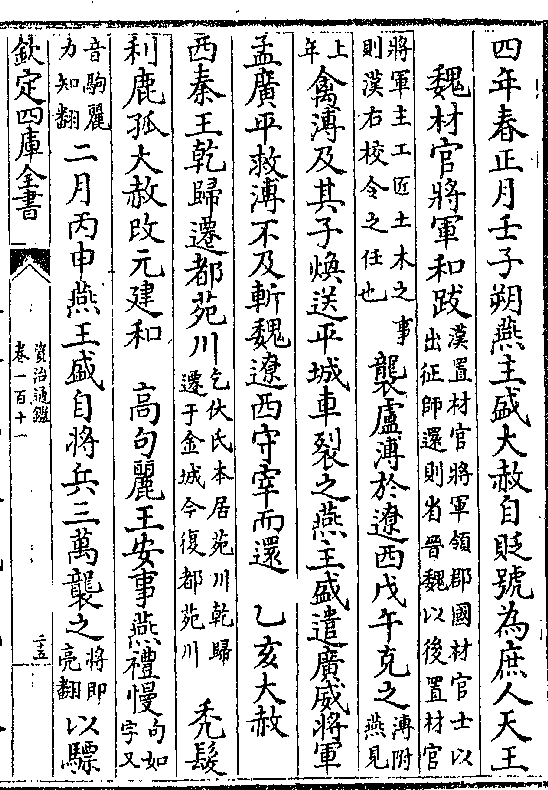 四年春正月壬子朔燕主盛大赦自貶號為庶人天王
魏材官將軍和跋漢置材官將軍領郡國材官士以出征師還則省晉魏以後置材官
將軍主工匠土木之事則漢右校令之任也襲盧溥於遼西戊午克之溥附燕見
上年禽溥及其子煥送平城車裂之燕主盛遣廣威將軍
孟廣平救溥不及斬魏遼西守宰而還 乙亥大赦
西秦王乾歸遷都苑川乞伏氏本居苑川乾歸遷于金城今復都苑川 禿髮
利鹿孤大赦改元建和 高句麗王安事燕禮慢句如字又
音駒麗力知翻二月丙申燕王盛自將兵三萬襲之將即亮翻以驃
欽定四庫全書
資治通鑑
卷一百十一